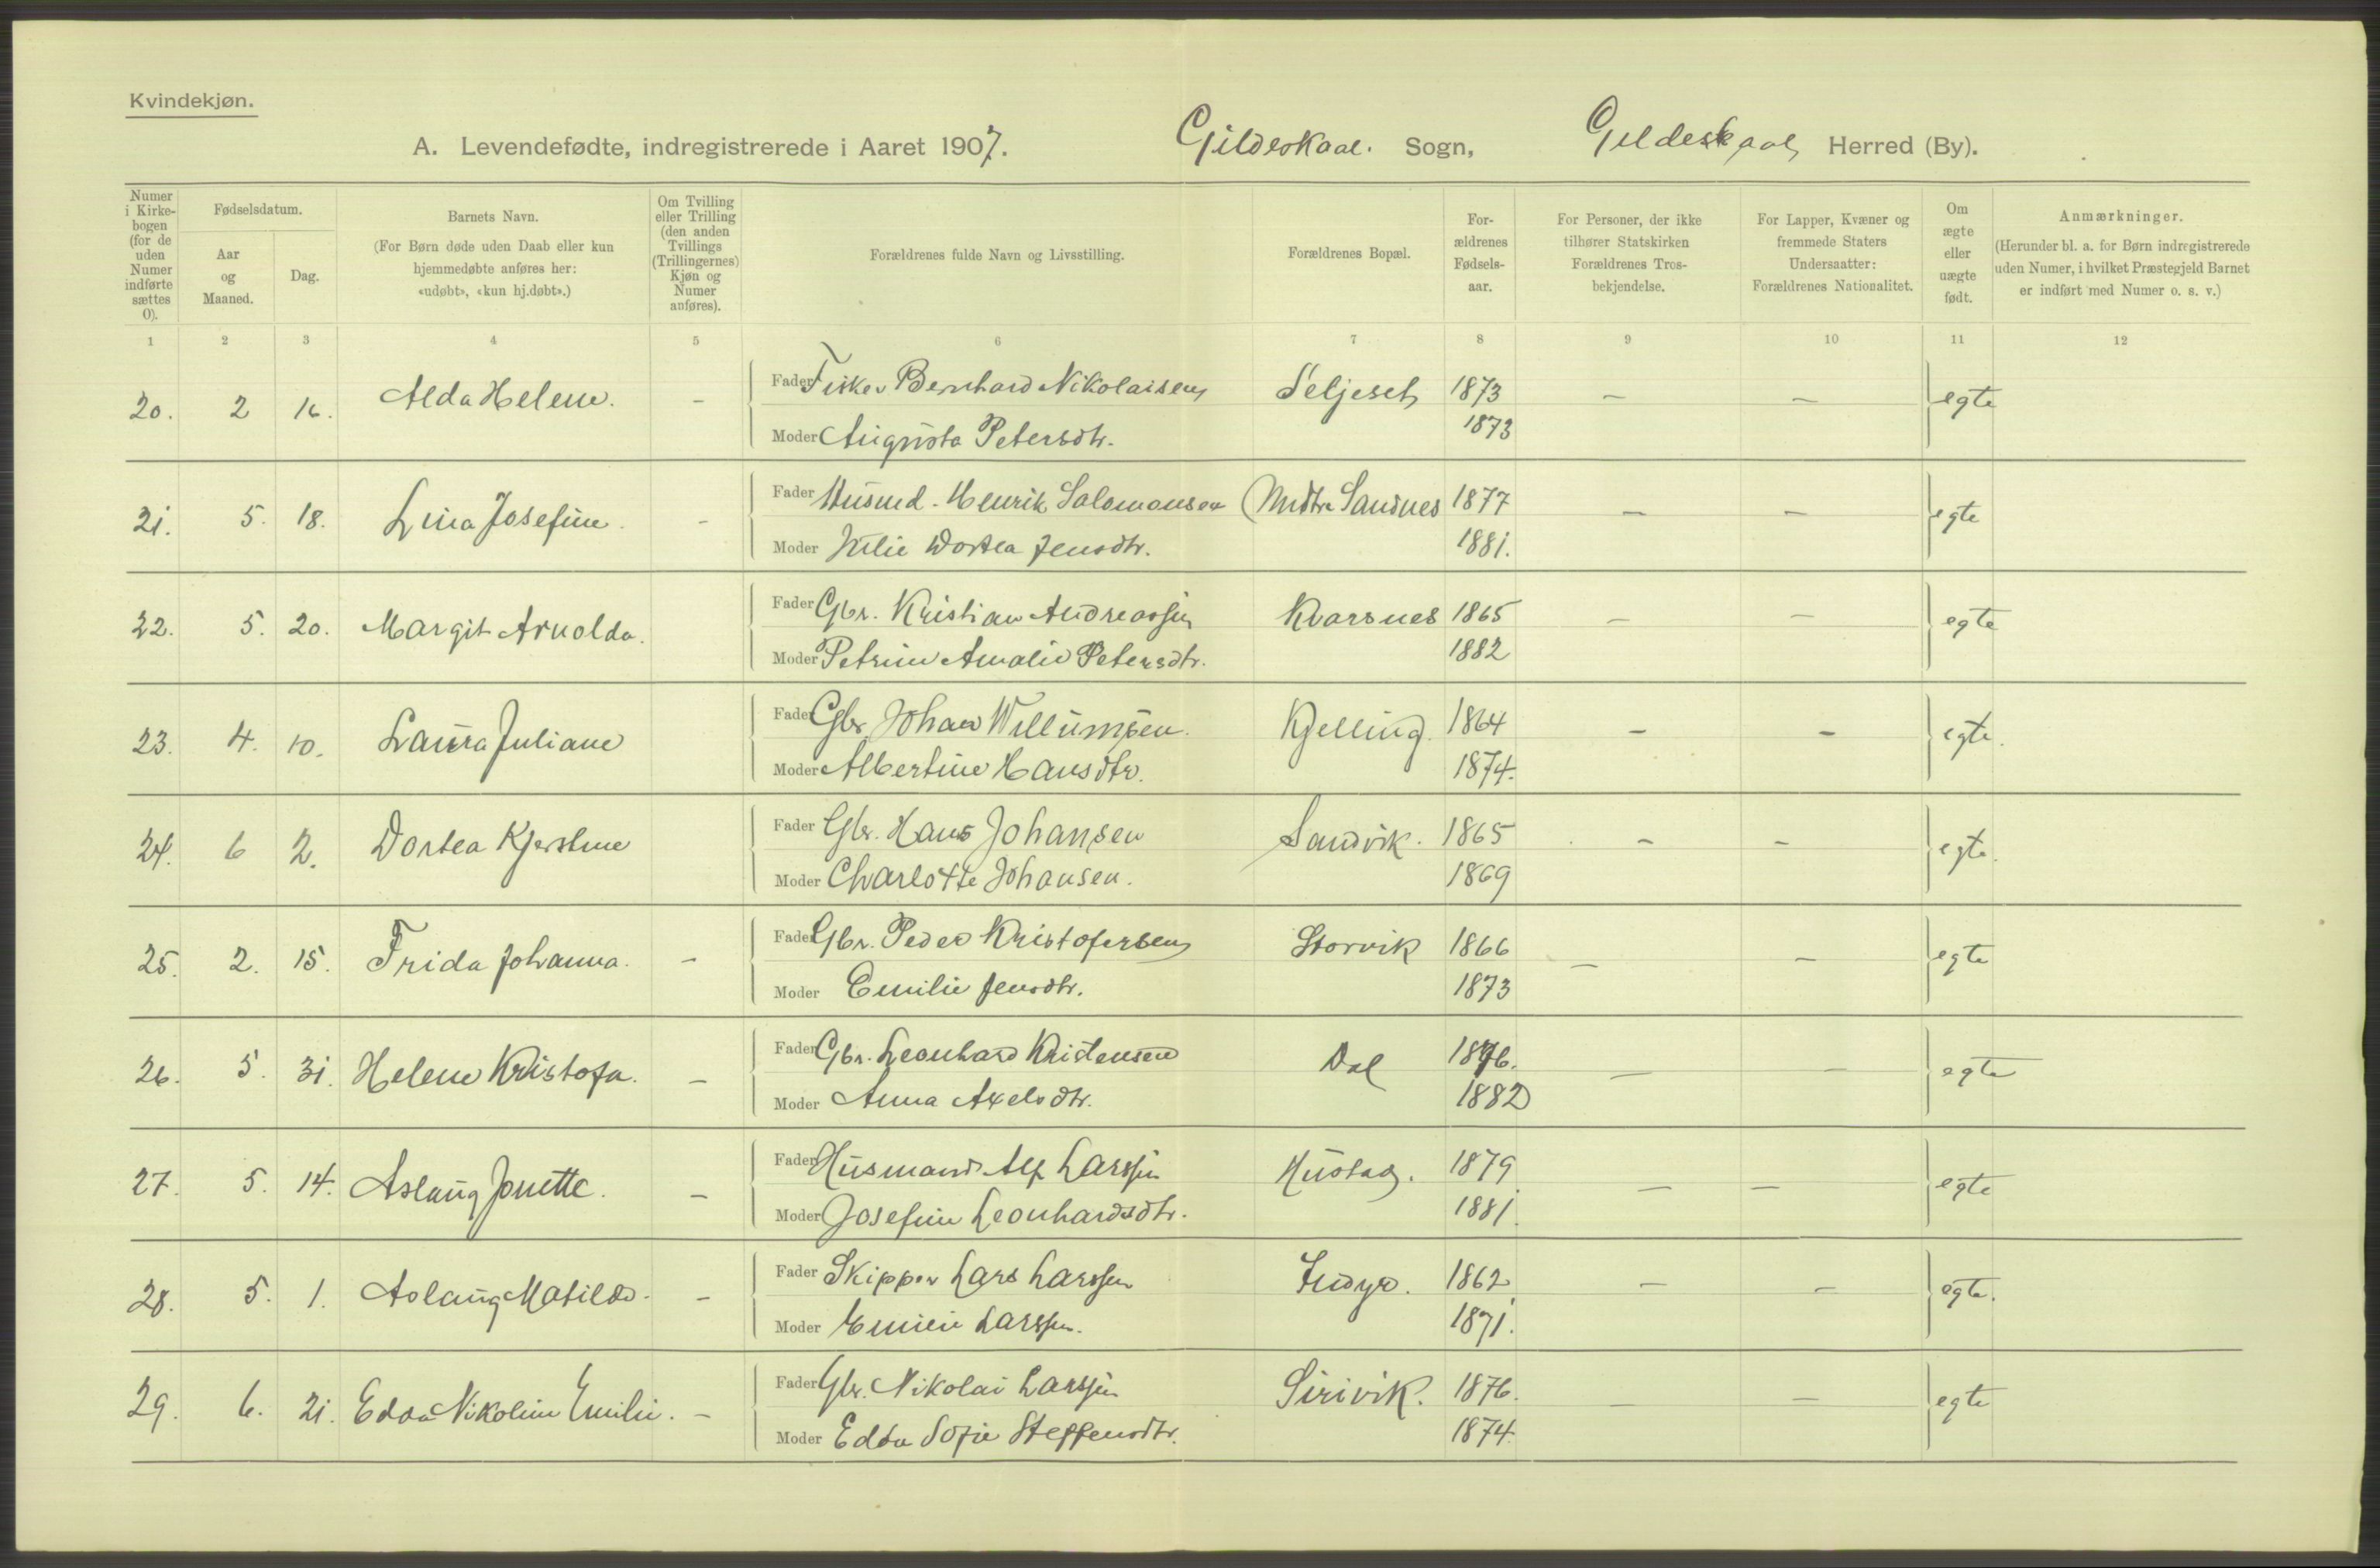 Kvindekjøn.
A. Levendefødte, indregistrerede i Aaret 1907. Gildeskaal. Sogn, Gildeskaal Herred (By).
Numer i Kirkebogen (for de uden Numer indførte sættes 0).
Fødselsdatum.
Aar og Maaned.
Dag.
Barnets Navn.
(For Børn døde uden Daab eller kun hjemmedøbte anføres her: «udøbt», «kun hj.døbt».)
Om Tvilling eller Trilling (den anden Tvillings (Trillingernes) Kjøn og Numer anføres).
Forældrenes fulde Navn og Livsstilling.
Forældrenes Bopæl.
Forældrenes Fødselsaar.
For Personer, der ikke tilhører Statskirken Forældrenes Trosbekjendelse.
For Lapper, Kvæner og fremmede Staters Undersaatter: Forældrenes Nationalitet.
Om ægte eller uægte født.
Anmærkninger.
(Herunder bl. a. for Børn indregistrerede uden Numer, i hvilket Præstegjeld Barnet er indført med Numer o. s. v.)
1 2 3 4 5 6 7 8 9 10 11 12
20. 2 16. Alda Helene. - Fader Fisker Bernhard Nikolaisen Seljeset 1873 - - egte
Moder Augusta Petersdtr. 1873
21. 5. 18. Lina Josefine. - Fader Husmd. Henrik Salomonsen Indre Sandnes 1877 - - egte
Moder Julie Dortea Jensdtr. 1881.
22. 5. 20. Margit Arnolda. Fader Gbr. Kristian Andreassen Kvarsnes 1865 - - egte
Moder Petrine Amalie Petersdtr. 1882
23. 4. 10. Laura Juliane Fader Gbr. Johan Willumsen. Kjelling. 1864 - - egte.
Moder Albertine Hansdtr. 1874.
24. 6 2. Dortea Kjerstine Fader Gbr. Hans Johansen Sandvik. 1865 - - egte.
Moder Charlotte Johansen. 1869
25. 2. 15. Frida Johanna. - Fader Gbr. Peder Kristofersen Storvik 1866 - - egte
Moder Emilie Jensdtr. 1873
26. 5. 31. Helene Kristofa. - Fader Gbr. Leonhard Kristensen Dal 1876. - - egte
Moder Anna Axelsdtr. 1882
27. 5. 14. Aslaug Jonette. - Fader Husmand Alf Larssen 1879 - - egte
Moder Josefine Leonhardsdtr. 1881.
28. 5. 1. Aslaug Matilde. - Fader Skipper Lars Larssen Indyr. 1862 - - egte.
Moder Emilie Larssen. 1871.
29. 6. 21. Edda Nikoline Emilie. - Fader Gbr. Nikolai Larssen Sirivik. 1876. - - egte
Moder Edda Sofie Steffensdtr. 1874